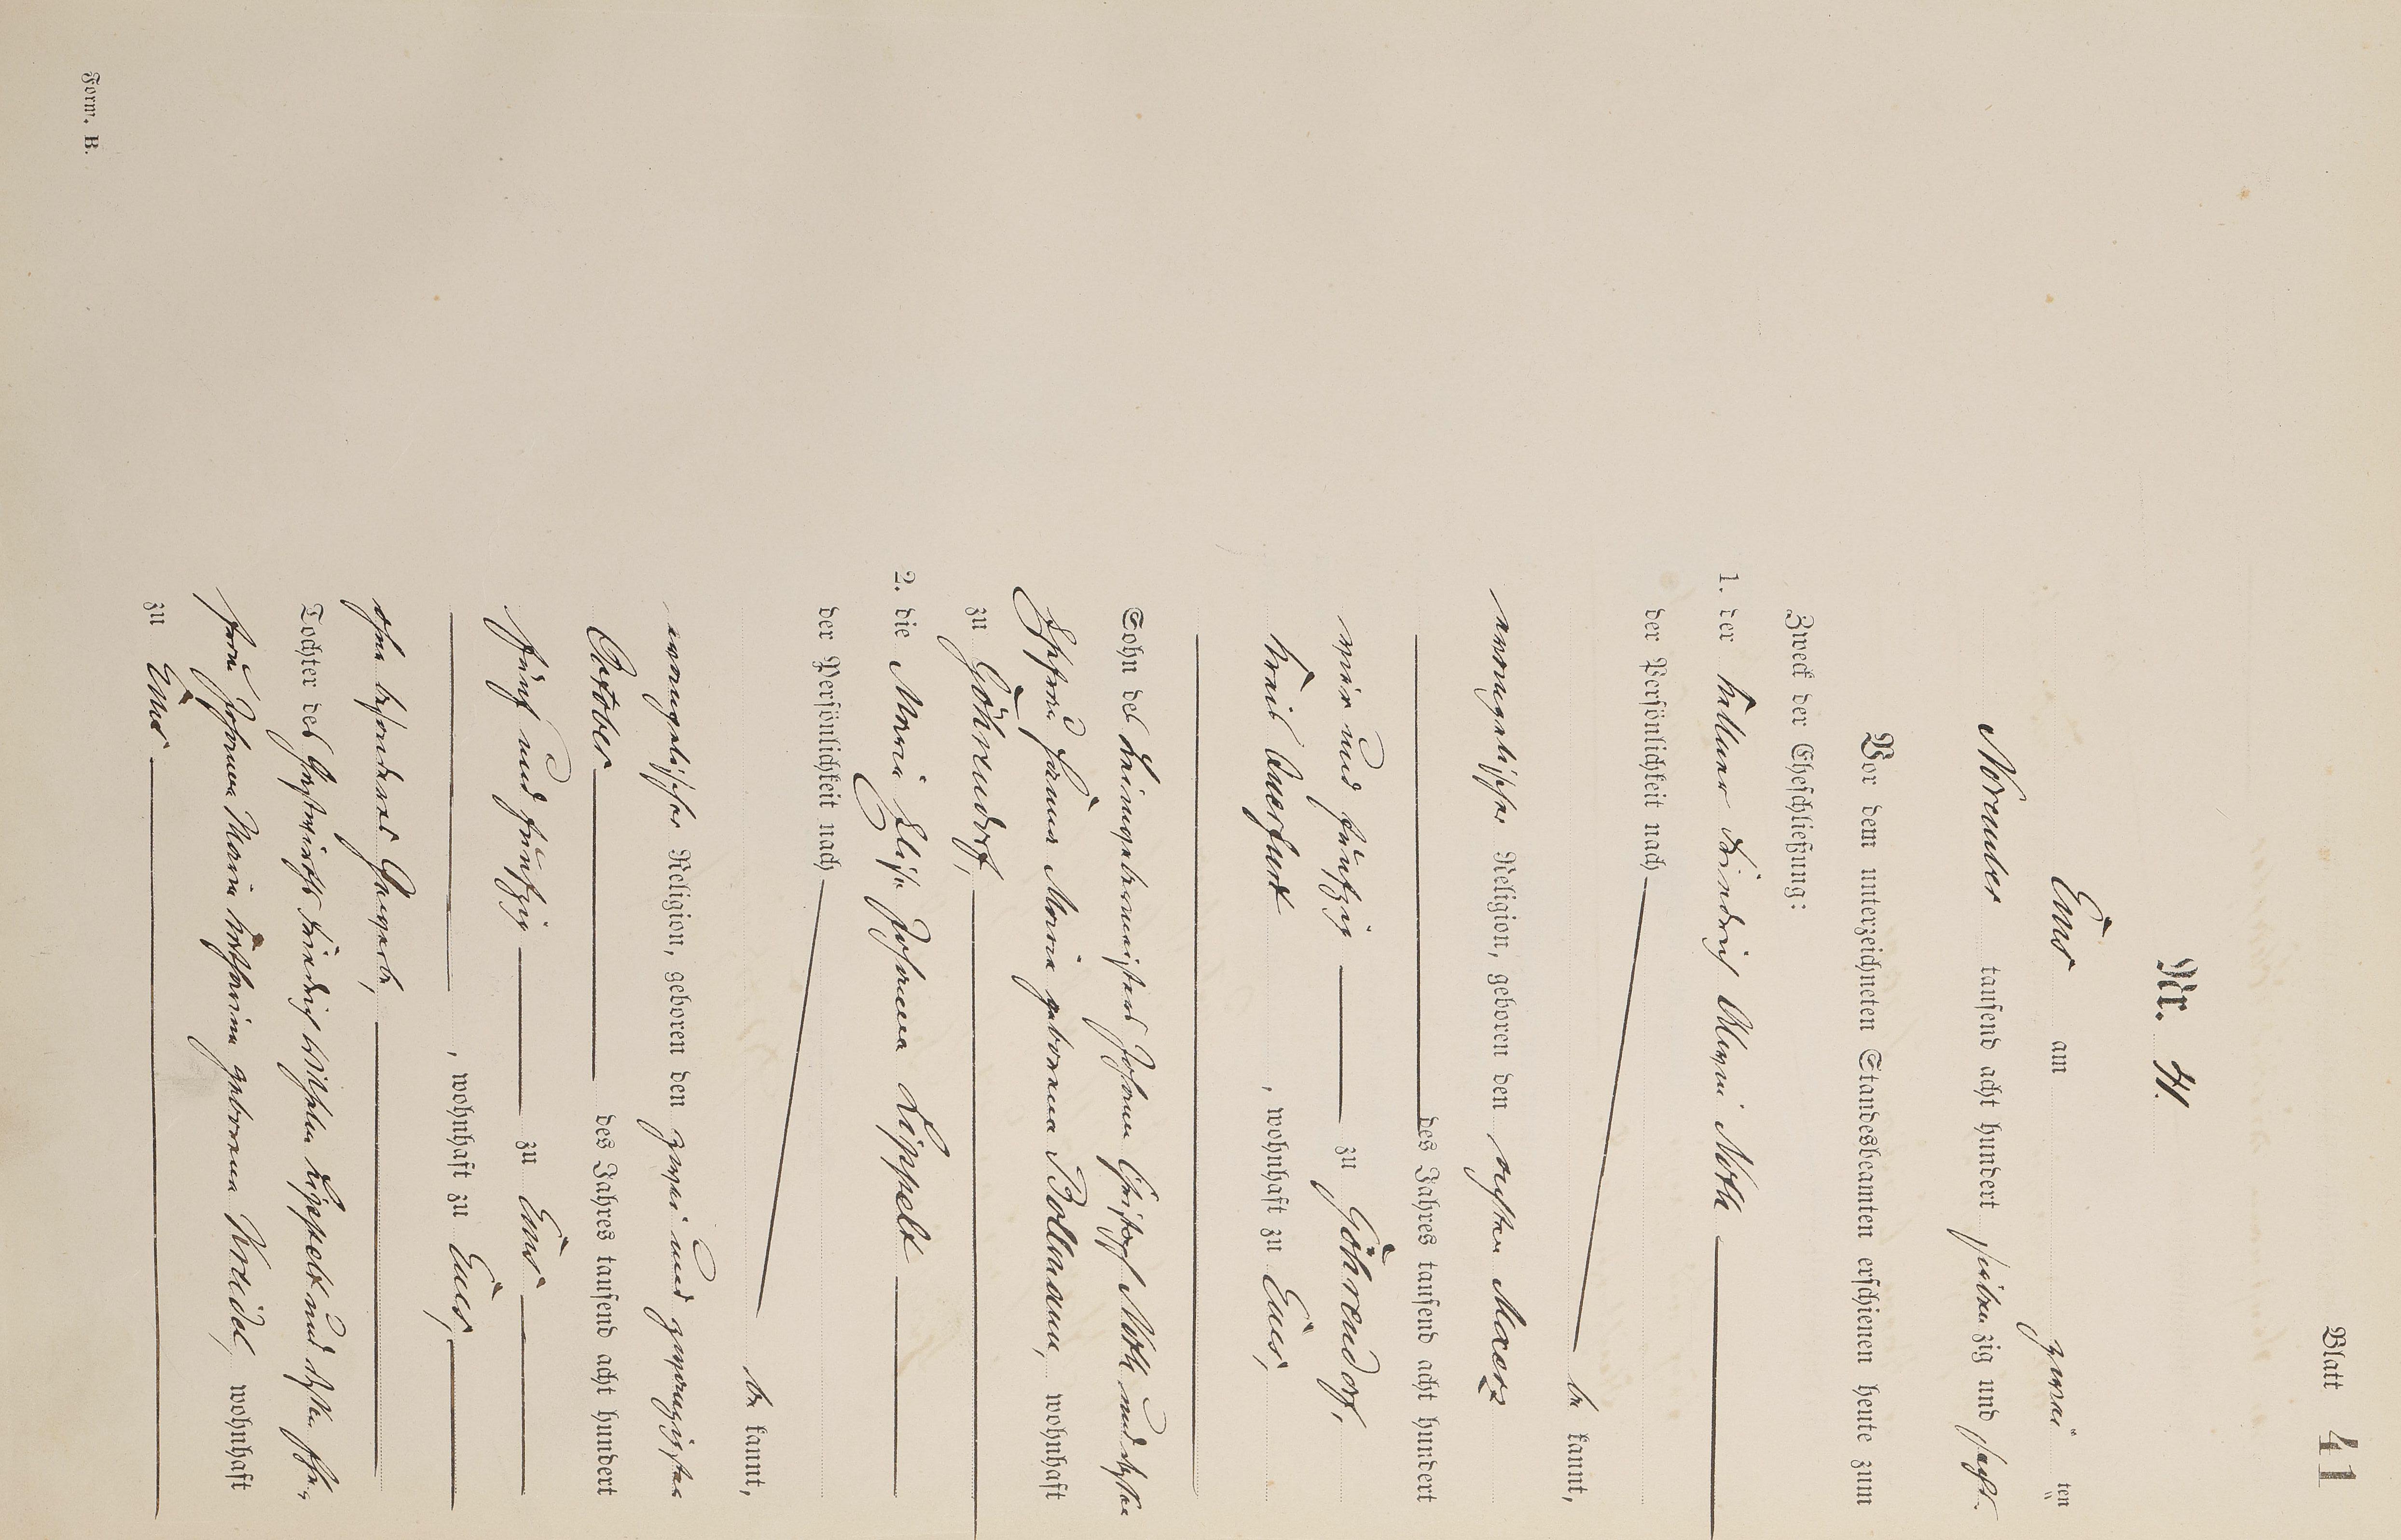 Blatt 41
Nr. 41.
Ems am zwei ten
November tausend acht hundert siebenzig und sechs
Vor dem unterzeichneten Standesbeamten erschienen heute zum
Zweck der Eheschließung:
1. der Kellner Friedrich Albin Noth
der Persönlichkeit nach
be kannt,
evangelischer Religion, geboren den sechsten Maerz
des Jahres tausend acht hundert
vier und fünfzig zu Göhrendorf,
Kreis Querfurt, wohnhaft zu Ems,
Sohn des Leinewebermeisters Johann Christoph Noth und dessen
Ehefrau Hanne Maria geborene Bollmann, wohnhaft
zu Göhrendorf,
2. die Maria Elise Johanna Lippelt
der Persönlichkeit nach
be kannt,
evangelischer Religion, geboren den zwei und zwanzigsten
October des Jahres tausend acht hundert
fünf und fünfzig zu Ems
, wohnhaft zu Ems,
ohne besonderes Gewerbe,
Tochter des Gastwirths Friedrich Wilhelm Lippelt und dessen Ehe-
frau Johanna Maria Katharina geborene wohnhaft
zu Ems
Form. B.